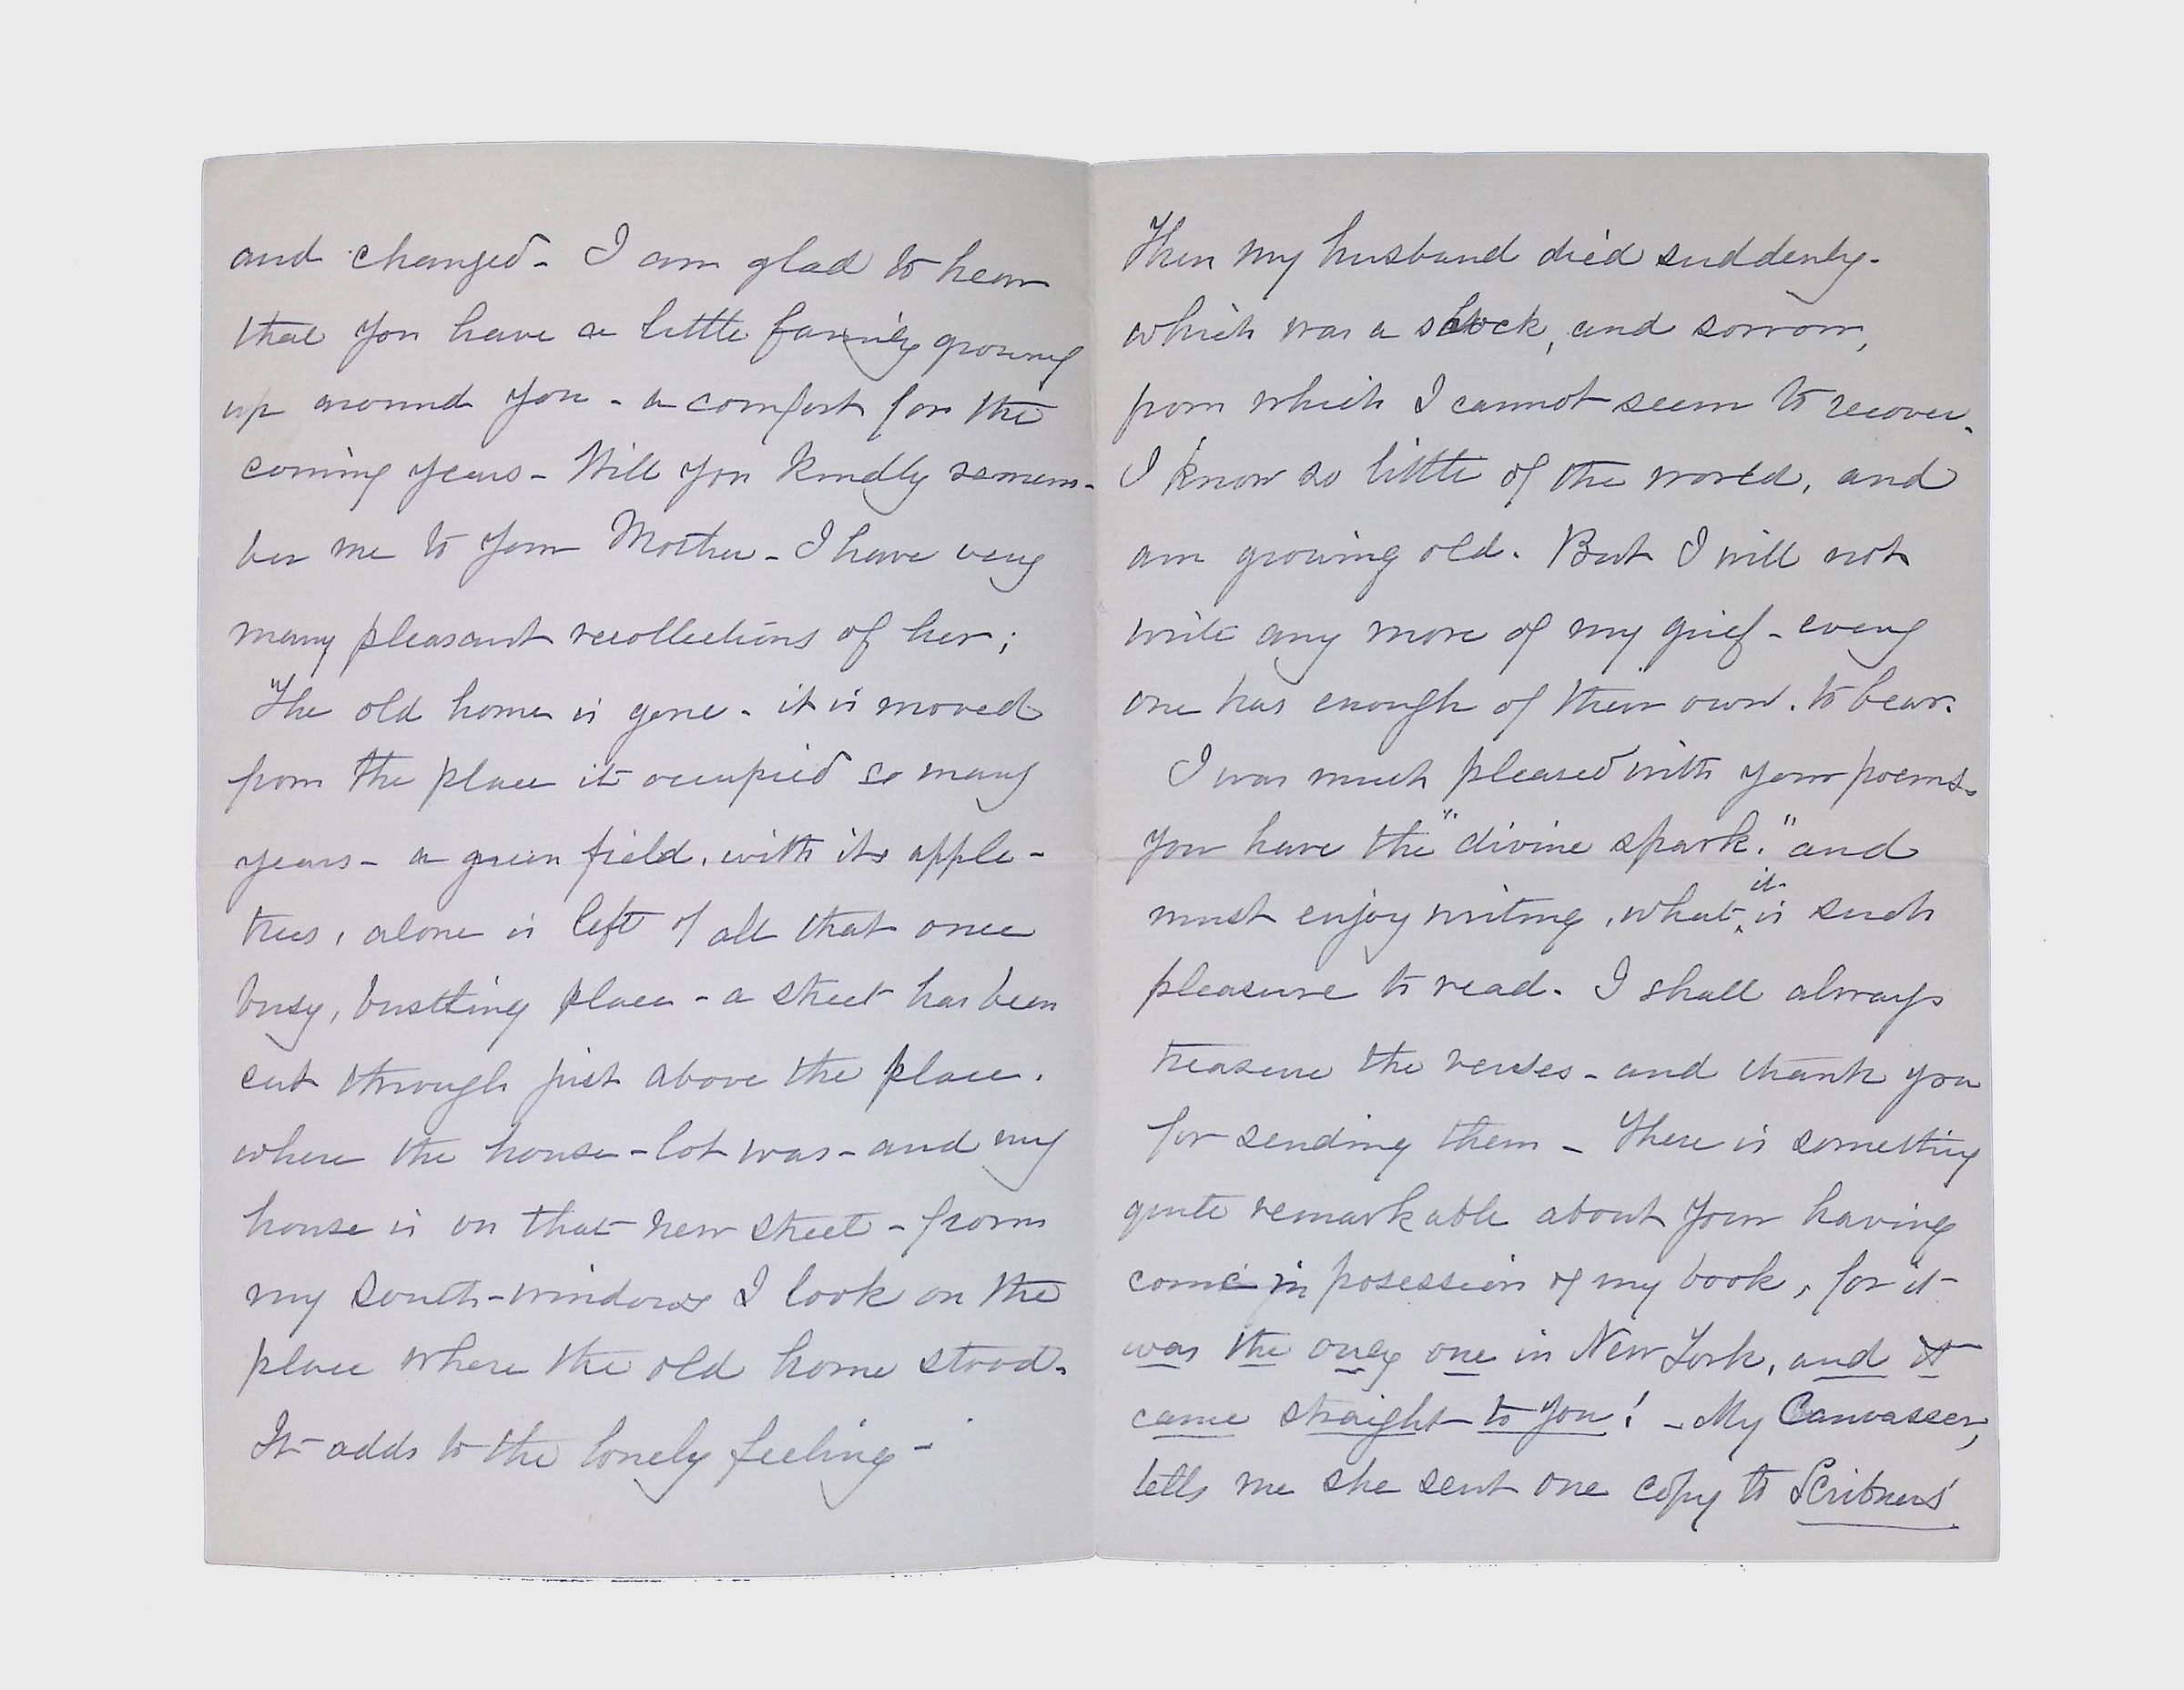 and changed - I am glad to hear
that you have a little family growing
up around you - a comfort for the
coming years - Will you kindly remem-
ber me to your Mother - I have very
many pleasant recollections of her;
The old home is gone - it is moved
from the place it occupied so many
years - a green field, with its apple-
trees, alone is left of all that once
busy, bustling place - a street has been
cut through just above the place.
where the house-lot was - and my
house is on that new street - from
my south-windows I look on the
place where the old home stood.
It adds to the lonely feeling -
Then my husband died suddenly -
which was a shock, and sorrow,
from which I cannot seem to recover.
I know so little of the world, and
am growing old. But I will not
write any more of my grief - every
one has enough of their own. to bear.
I was much pleased with your poems.
You have the "divine spark." and
must enjoy writing, what it is such
pleasure to read. I shall always
treasure the verses - and thank you
for sending them - There is something
quite remarkable about your having
come in posession of my book, for it
was the only one in New York, and it
came straight to you! - My Canvasser,
tells me she sent one copy to Scribners'